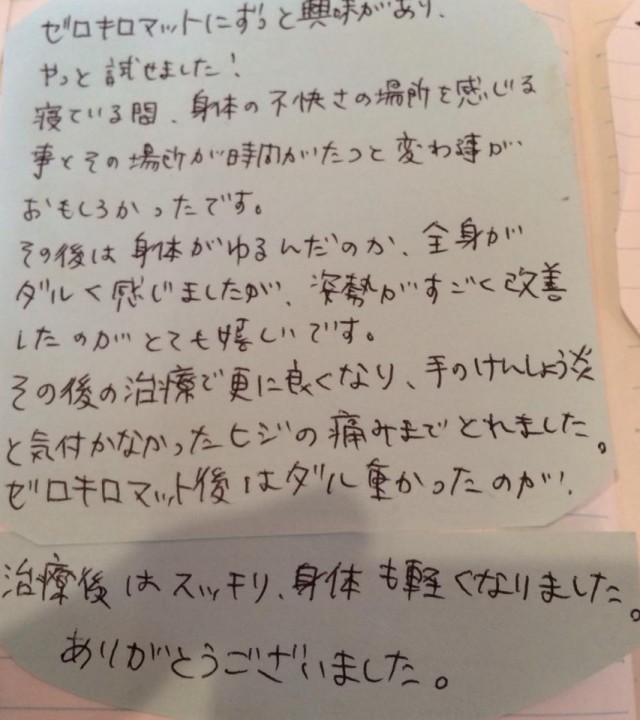 ゼロキロマットにずっと興味があり、
やっと試せました!
寝ている間、身体の不快さの場所を感じる
事とその場所が時間がたつと変わ事が
おもしろかったです。
その後は身体がゆるんだのか、全身が
ダルく感じましたが、姿勢がすごく改善
したのがとても嬉しいです。
その後の治療で更に良くなり、手のけんしょう炎
と気付かなかったヒジの痛みまでとれました。
ゼロキロマット後はダル重かったのが、
治療後はスッキリ、身体も軽くなりました。
ありがとうございました。